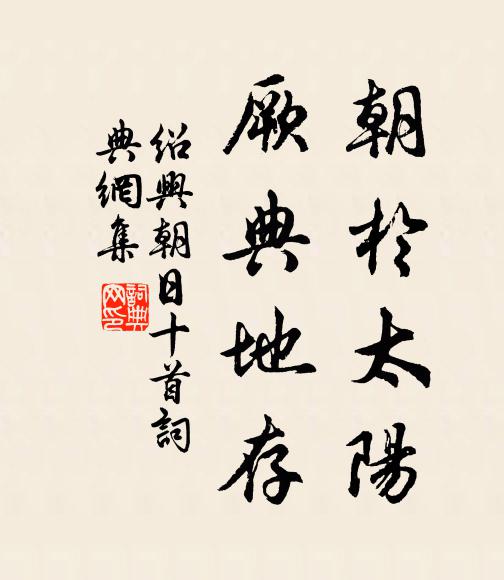 朝於太陽
厥典地存
紹興朝日十首詞
典網集
詞典網印